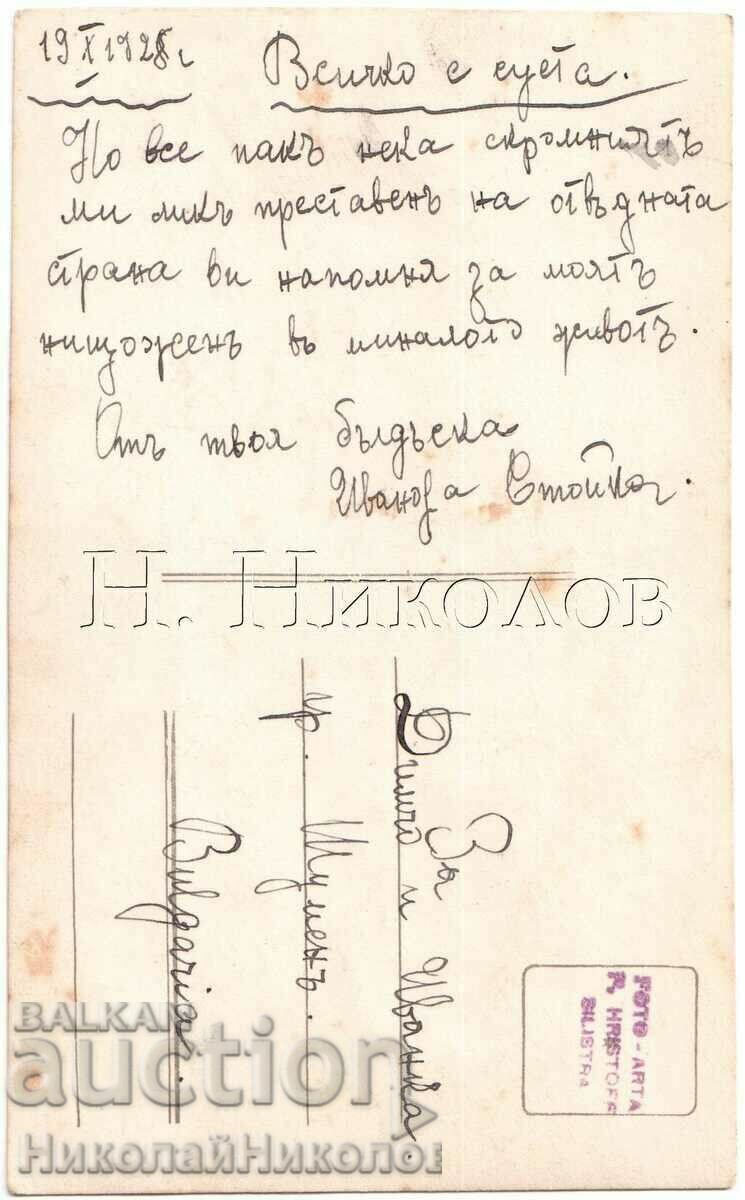 19 X 1928 г
Всичко е суета.
Но все пакъ нека скромниятъ
ми ликъ преставенъ на отвъдната
страна ви напомня за моятъ
нищоженъ въ миналото животъ.
Отъ твоя
Иванова Стойка.
Н. Николов
За
Димчо и Иванка.
гр. Шуменъ.
Bulgaria.
FOTO-ARTA
P. HRISTOFF
SILISTRA
BALKAN
auction
НиколайНиколов